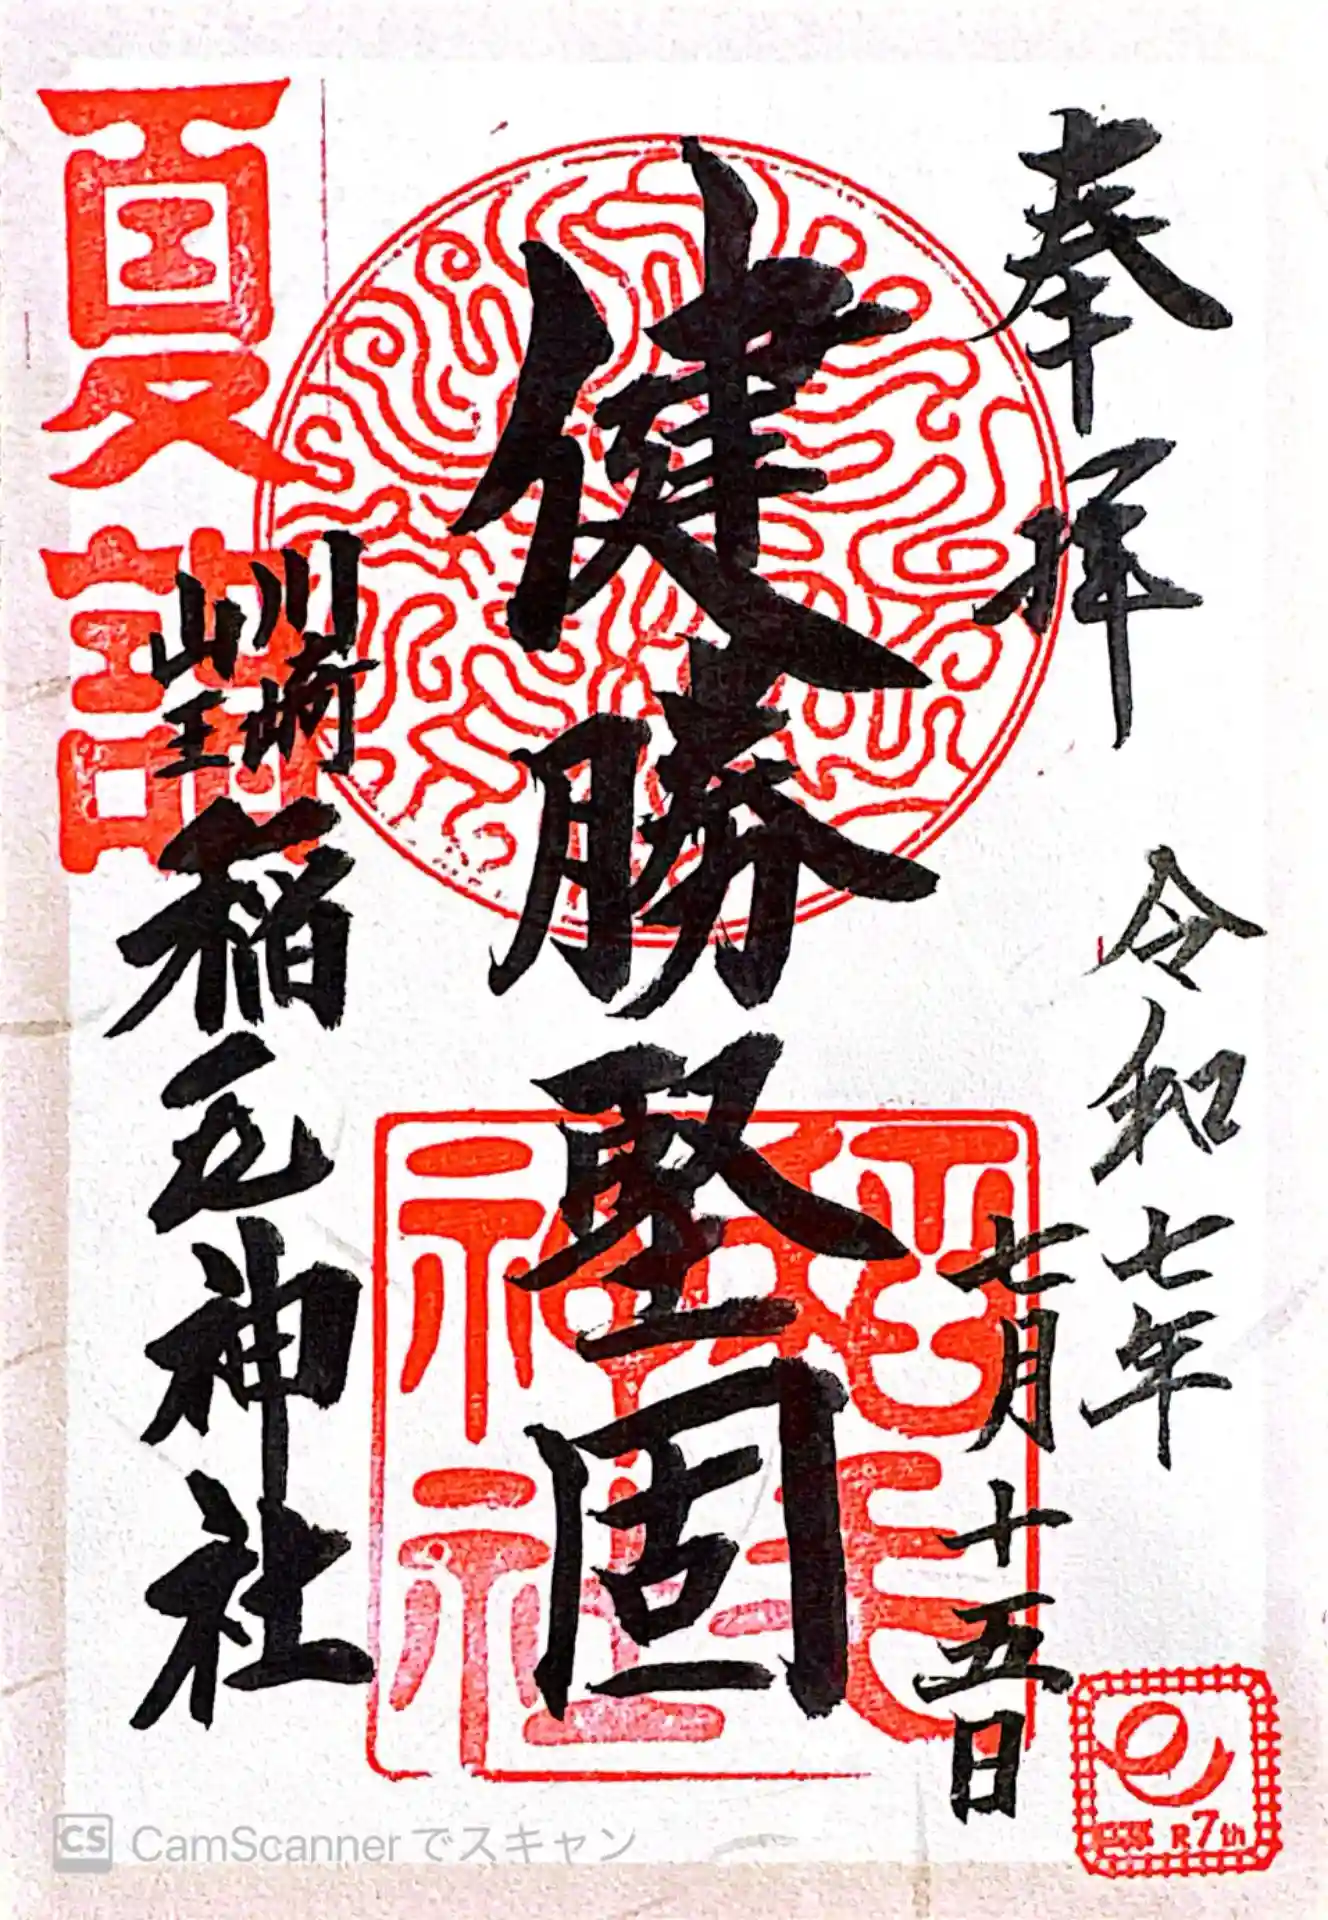 奉拝
令和七年
七月十五日
健勝堅固
川崎
山王
稲毛神社
夏詣
稲毛
神社
R7th
CS CamScannerでスキャン